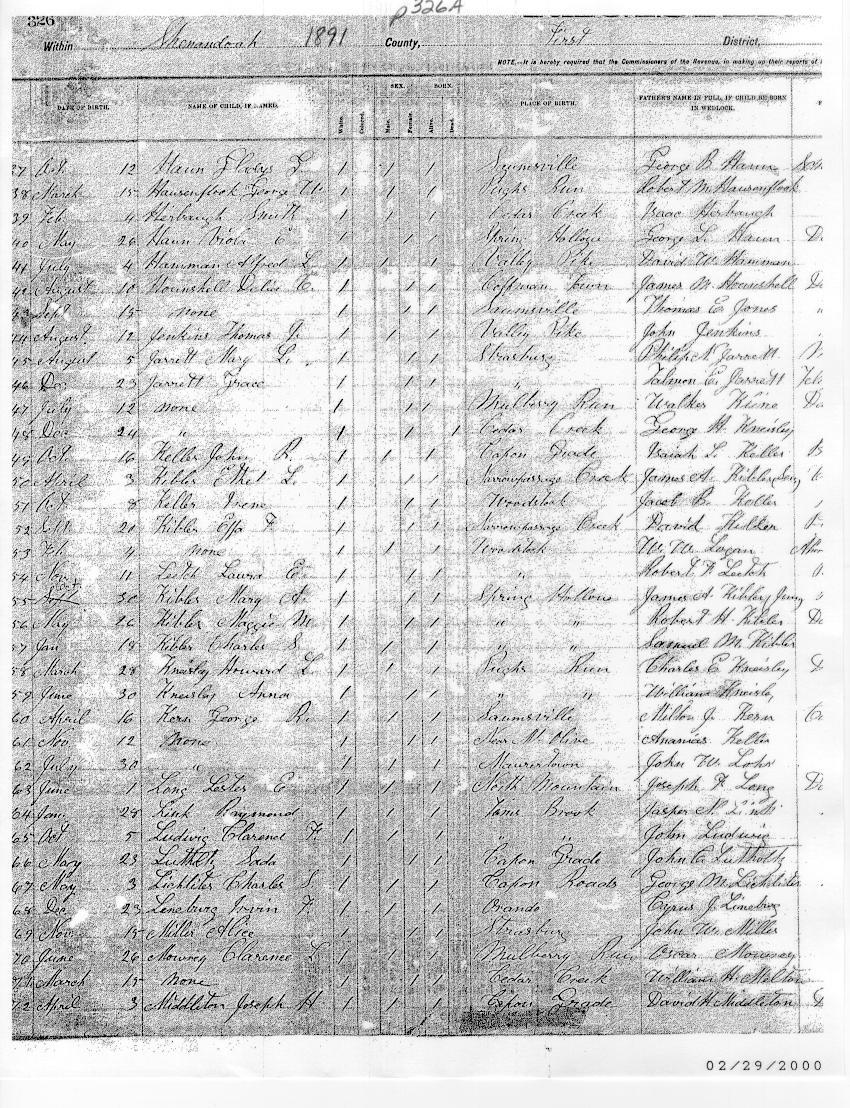 326
p326A
Within Shenandoah 1891 County, First District,
NOTE.--It is hereby required that the Commissioners of the Revenue, in making up their reports of
SEX. BORN.
DATE OF BIRTH. NAME OF CHILD, IF NAMED. White. Colored. Male. Female. Alive. Dead. PLACE OF BIRTH. FATHER'S NAME IN FULL, IF CHILD BE BORN
IN WEDLOCK.
37 12 Haun Gladys 1 1 1 Saumsville George B Haun
38 March 15 Hausenflook George W 1 1 1 Pughs Run Robert M Hausenflook
39 Feb 4 Herbaugh Smith 1 1 1 Cedar Creek Isaac Herbaugh
40 May 26 Haun Viola E 1 1 1 Spring Hollow George L. Haun
41 July 4 Hamman Alfred L. 1 1 1 Valley Pike David W. Hamman
42 August 10 Hounshell 1 1 1 Coffman Town James M. Hounshell
43 Sept 15 none 1 1 1 Saumsville Thomas E. Jones "
44 August 12 Jenkins Thomas J. 1 1 1 Valley Pike John Jenkins
45 August 5 Jarrett Mary L. 1 1 1 Strasburg Philip N. Jarrett
46 Dec 23 Jarrett Grace 1 1 1 " Talmon E. Jarrett
47 July 12 none 1 1 1 Mulberry Run Walker Kline
48 Dec 24 " 1 1 1 Cedar Creek George H. Kneisley
49 Oct 16 Keller John R. 1 1 1 Capon Grade Isaiah L. Keller
50 April 3 Kibler Ethel L. 1 1 1 Narrowpassage Creek James A. Kibler
51 8 Keller Irene 1 1 1 Woodstock Jacob B. Keller
52 Sept 21 Kibler Effa F. 1 1 1 Narrowpassage Creek David
53 Feb 4 none 1 1 1 Woodstock W. W. Logan
54 Nov 11 Leitch Laura E. 1 1 1 " Robert F Leitch
55 Oct 30 Kibler Mary A. 1 1 1 Spring Hollow James A. Kibler
56 May 26 Kibler Maggie M. 1 1 1 " " Robert H. Kibler
57 Jan 18 Kibler Charles S. 1 1 1 " " Samuel M. Kibler
58 March 28 Kneisley Howard L. 1 1 1 Pughs Run Charles E Kneisley
59 June 30 Kneisley Anna 1 1 1 " " William Kneisley
60 April 16 Kern George R. 1 1 1 Saumsville Milton J. Kern
61 Nov. 12 None 1 1 1 Near Mt Olive Ananias Keller
62 July 30 " 1 1 1 Maurertown John W. Lohr
63 June 1 Long Lester E 1 1 1 North Mountain Joseph F Long
64 Jan. 28 Link Raymond 1 1 1 Toms Brook Jasper N. Link
65 Oct 5 Ludwig Clarence F. 1 1 1 " " John Ludwig
66 May 23 Lutholtz Sada 1 1 1 Capon Grade John C Lutholtz
67 May 3 Lichliter Charles S. 1 1 1 Capon Roads George M Lichliter
68 Dec 23 Lineburg Irvin F. 1 1 1 Orando Cyrus J. Lineburg
69 Nov. 15 Miller Alice 1 1 1 Strasburg John W. Miller
70 June 26 Mowrey Clarence L 1 1 1 Mulberry Run Oscar Mowrey
71 March 15 None 1 1 1 Cedar Creek William H. Melton
72 April 3 Middleton Joseph H 1 1 1 Capon Grade David H Middleton
02/29/2000